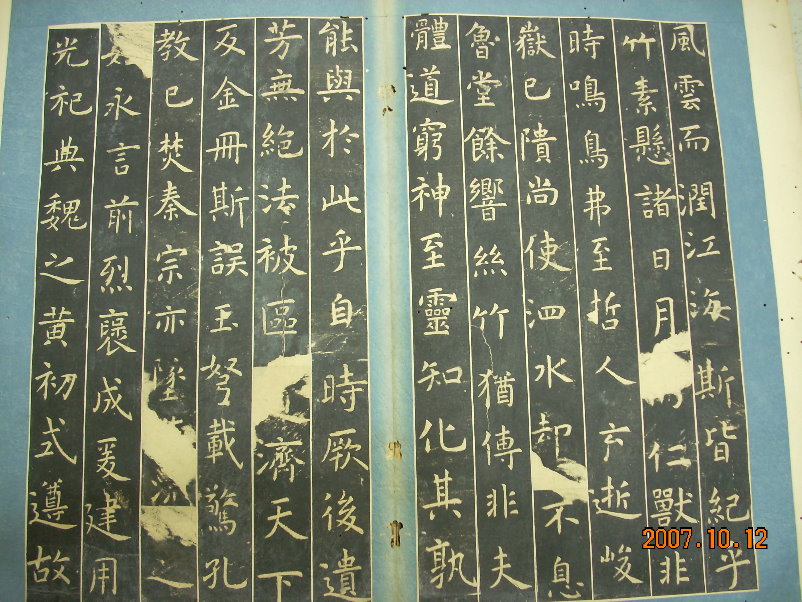 風雲而潤江海斯皆紀乎
竹素懸諸日月仁獸非
時鳴鳥弗至哲人云逝峻
嶽已隤尚使泗水却不息
魯堂餘響絲竹猶傳非夫
體道窮神至靈知化其孰
能與於此乎自時厥後遺
芳無絕法被區濟天下
及金冊斯誤玉弩載驚孔
教已焚秦宗亦墜之
永言前烈褒成爰建用
光祀典魏之黄初式遵故
2007.10.12